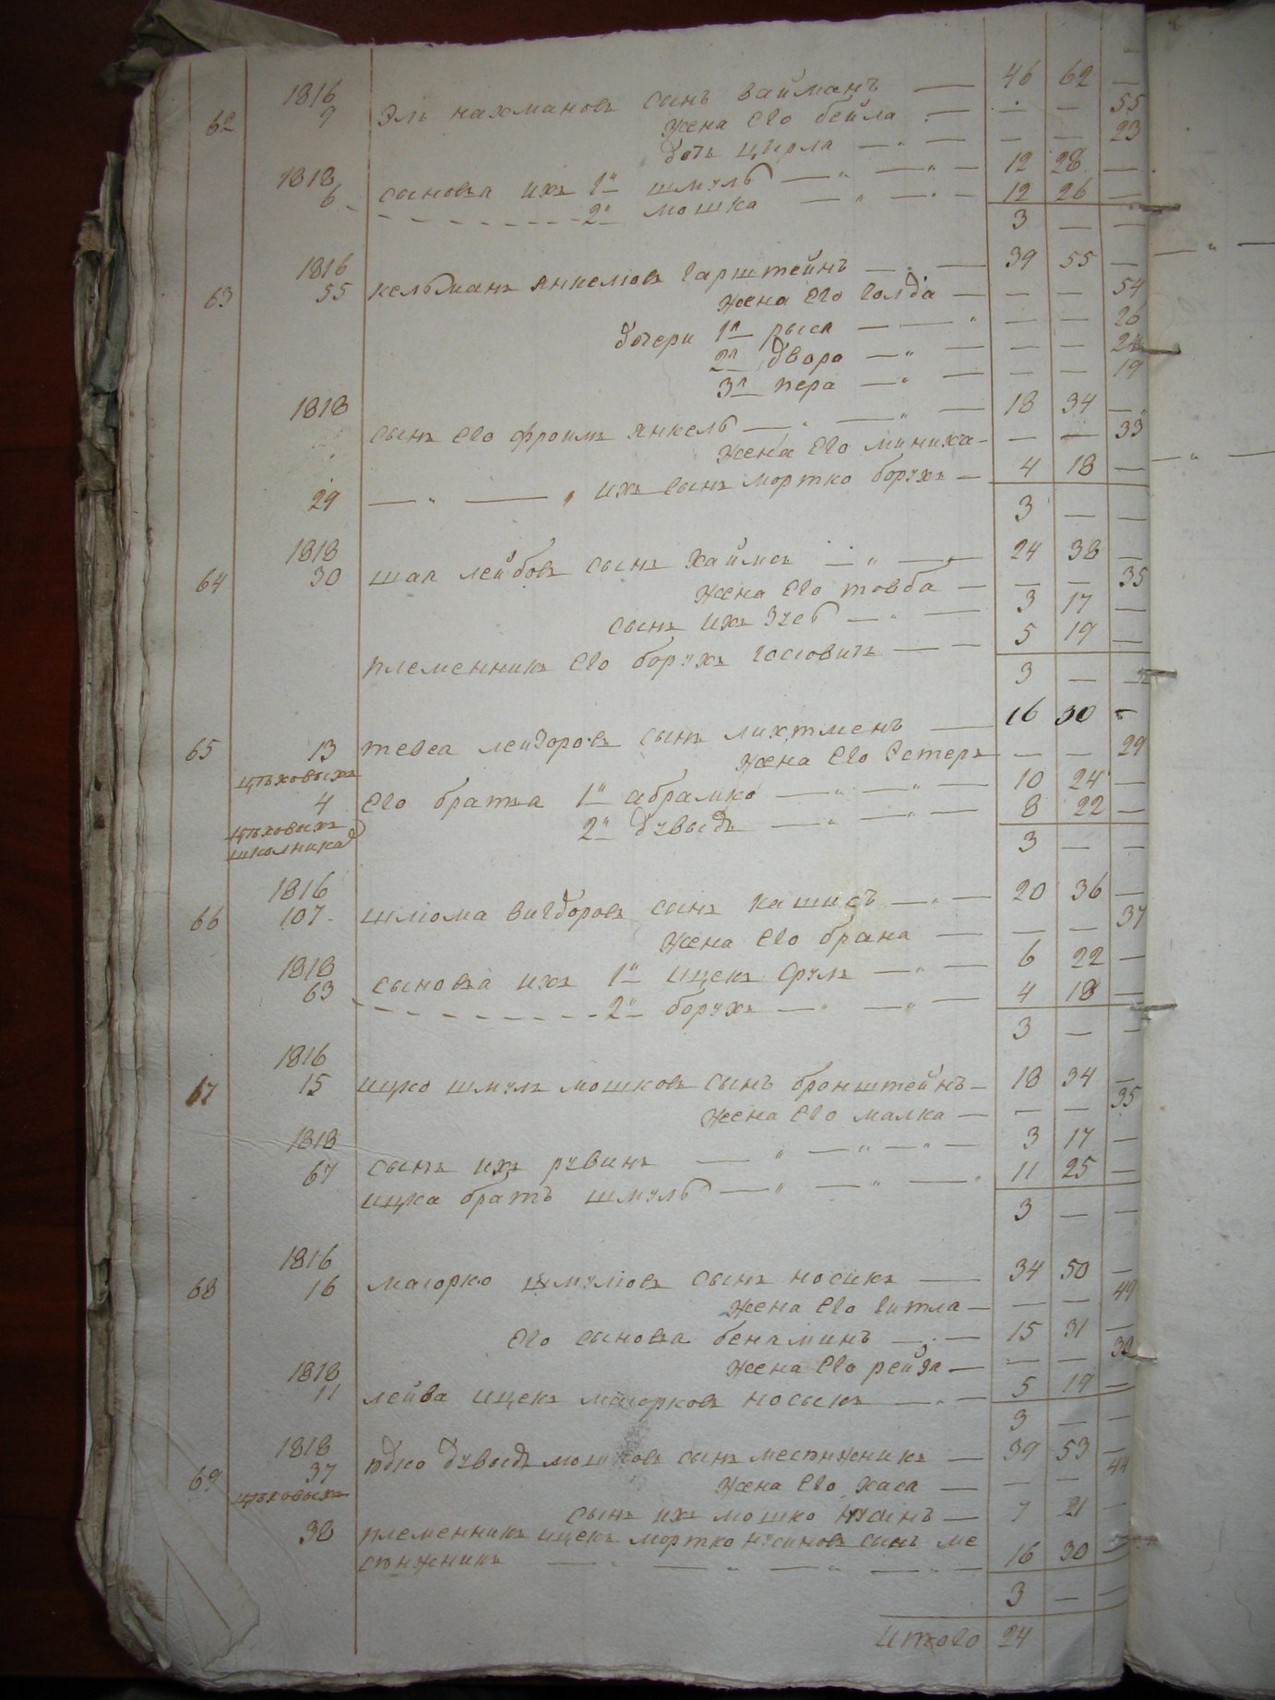 1816 46 62 —
62 9 Эль нахмановъ сынъ вайманъ — 55
жена его бейла — — — 23
дочь цирля — — —
1818 12 28 —
6 сыновья ихъ 1й шмуль — 12 26 —
2й мошка — 3 — —
1816 39 55 —
63 55 кельманъ янкелiовъ гарштейнъ —
жена его голда — — — 54
дочери 1я рыса — — — 26
2я двора — — — 24
3я пера — — — 19
1818 18 34 —
сынъ его фроимъ янкель —
жена его миниха — — — 33
29 ихъ сынъ мортко борухъ — 4 18 —
3 — —
1818 24 38 —
64 30 шая лейбовъ сынъ
жена его товба — — — 35
сынъ ихъ — 3 17 —
племенникъ его борухъ — 5 19 —
3 — —
65 13 тевел сынъ лихтменъ — 16 30 —
цѣховыхъ жена его естеръ — — 29
4 его братья 1й абрамко — 10 24 —
цѣховыхъ 2й дувыдъ — 8 22 —
школника 3 — —
1816 20 36 —
66 107 шлiома вигдоровъ сынъ —
жена его брана — — — 37
1818 6 22 —
63 сыновья ихъ 1й ицекъ срулъ —
2й борухъ — 4 18 —
3 — —
1816
67 15 ицко шмулъ мошковъ сынъ бронштейнъ — 18 34 —
жена его малка — — — 35
1818 3 17 —
67 сынъ ихъ рувинъ —
ицка братъ шмуль — 11 25 —
3 — —
1816 34 50 —
68 16 маiорко шмулiовъ сынъ носикъ —
жена его гитла — — — 49
его сыновья бенаминъ — 15 31 —
1818 жена его рейза — — —
11 лейба ицекъ маiорковъ носыкъ — 5 19 —
3 — —
1818 39 53 —
69 37 дувыдъ мошковъ сынъ —
цѣховыхъ жена его хася — — — 44
сынъ ихъ мошко нусинъ — 7 21 —
38 племенникъ ицекъ мортко нусиновъ сынъ ме
16 30 —
3 — —
Итого 24